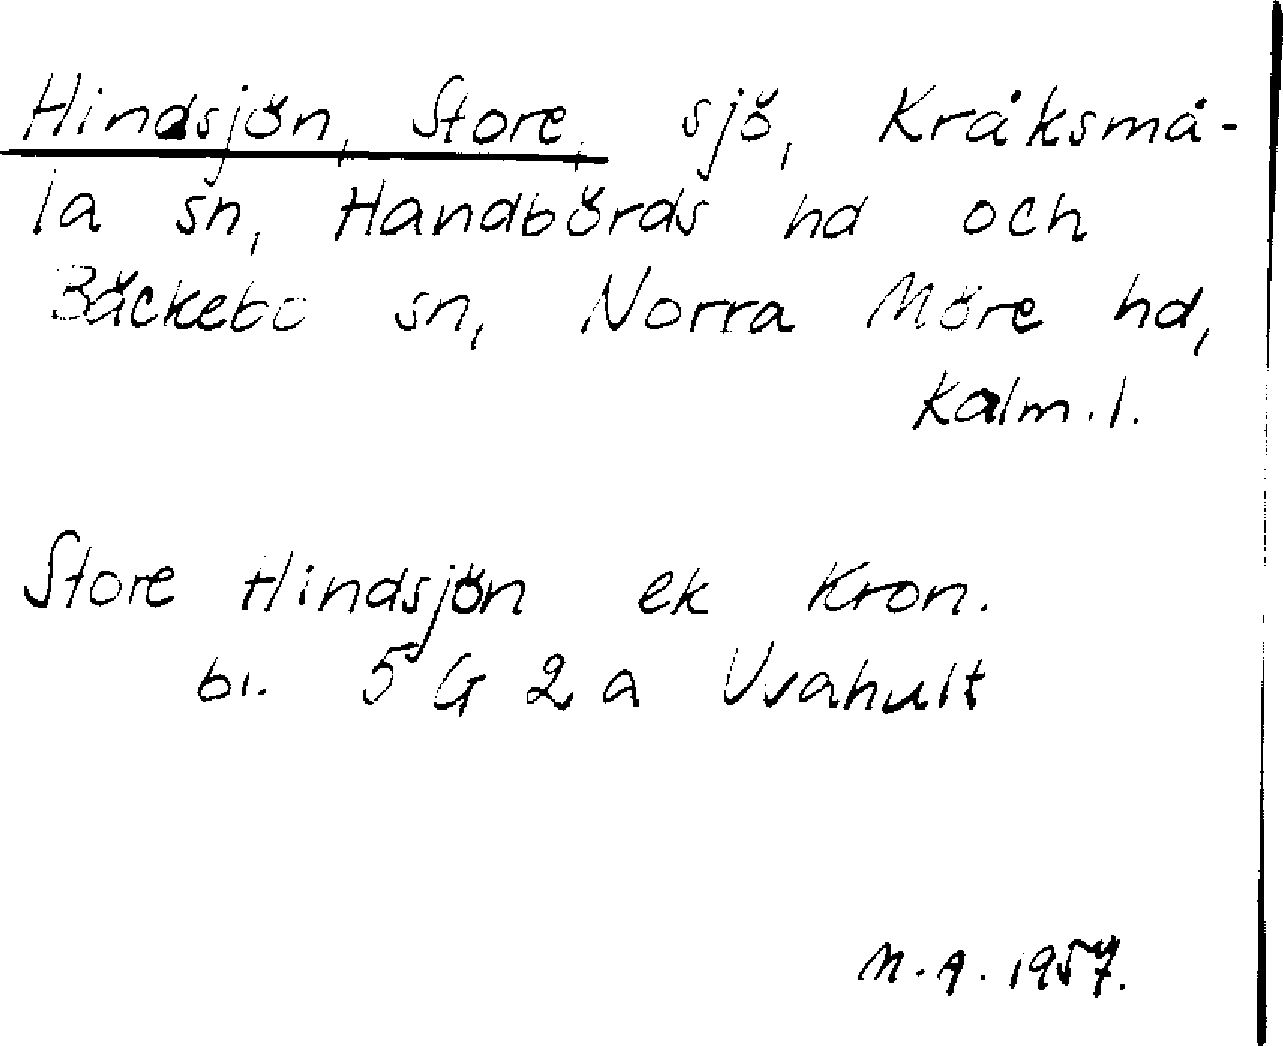 Hindsjön, Store, sjö, Kråksmå-
la sn, Handbörds hd och
Bäckebo sn, Norra Möre hd,
Kalm. l.
Store Hindsjön ek Kron.
bl. 5 G 2 a Uvahult
M.A. 1957.